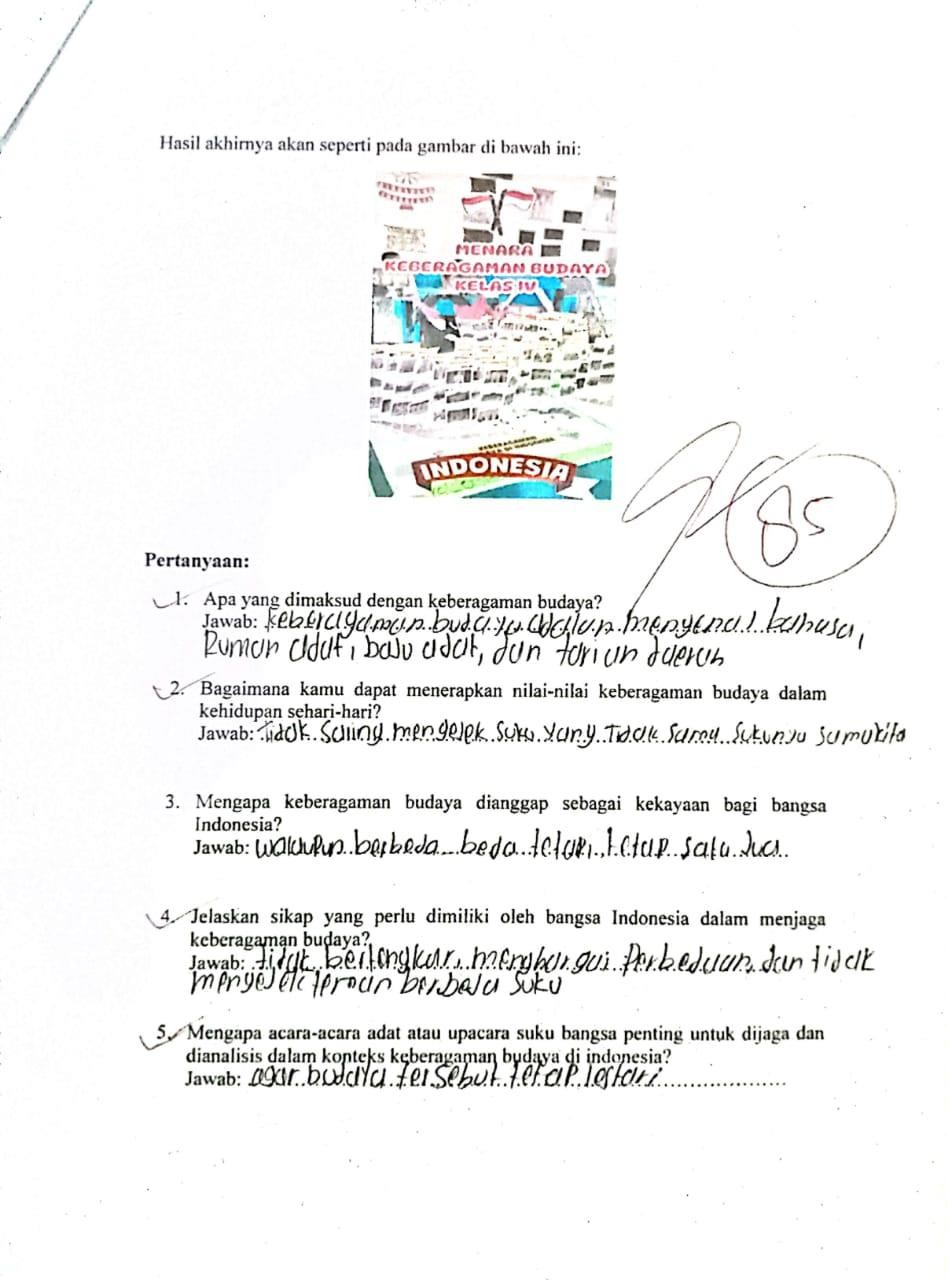 Hasil akhirnya akan seperti pada gambar di bawah ini:
MENARA
KEBERAGAMAN BUDAYA
KELAS IV
KEBERAGAMAN
INDONESIA
85
Pertanyaan:
1. Apa yang dimaksud dengan keberagaman budaya?
Jawab: keberagaman budaya adalah mengenal bahasa,
Rumah adat, baju adat, dan tarian daerah
2. Bagaimana kamu dapat menerapkan nilai-nilai keberagaman budaya dalam
kehidupan sehari-hari?
Jawab: Tidak saling mengejek suku yang Tidak sama sukunya sama kita
3. Mengapa keberagaman budaya dianggap sebagai kekayaan bagi bangsa
Indonesia?
Jawab: walaupun berbeda beda tetapi tetap satu jua
4. Jelaskan sikap yang perlu dimiliki oleh bangsa Indonesia dalam menjaga
keberagaman budaya?
Jawab: tidak bertengkar, menghargai Perbedaan dan tidak
mengejek teman berbeda suku
5. Mengapa acara-acara adat atau upacara suku bangsa penting untuk dijaga dan
dianalisis dalam konteks keberagaman budaya di indonesia?
Jawab: agar budaya tersebut tetap lestari